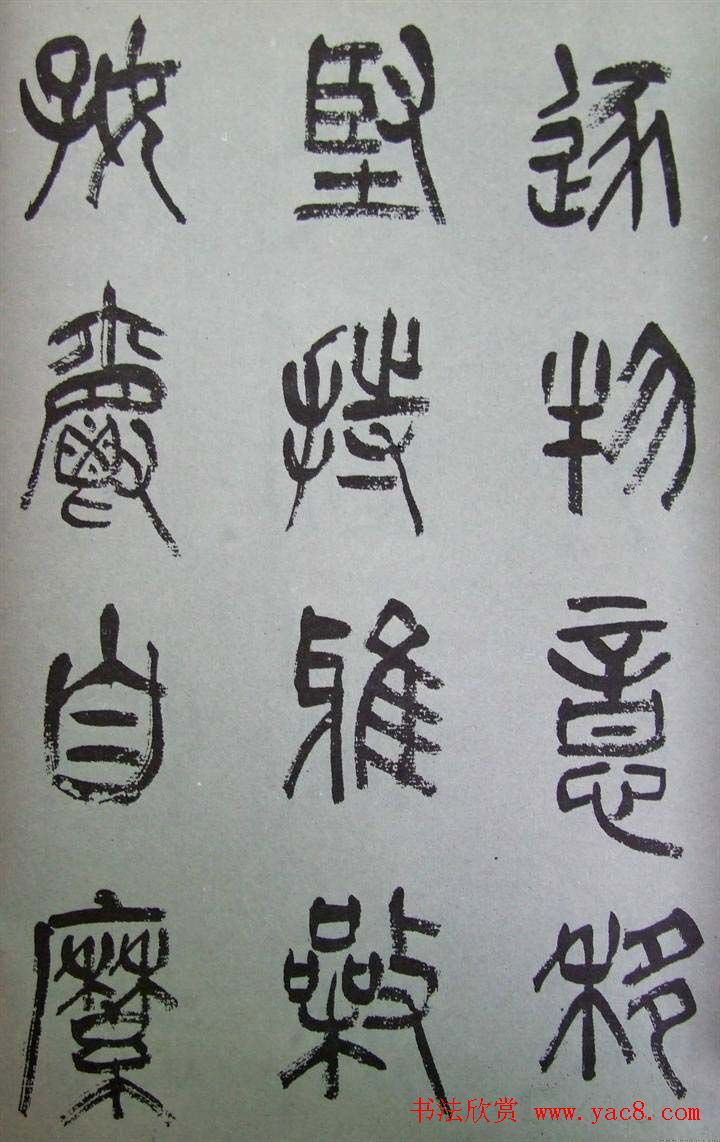 逐物意移
堅持雅操
好爵自縻
书法欣赏 www.yac8.com